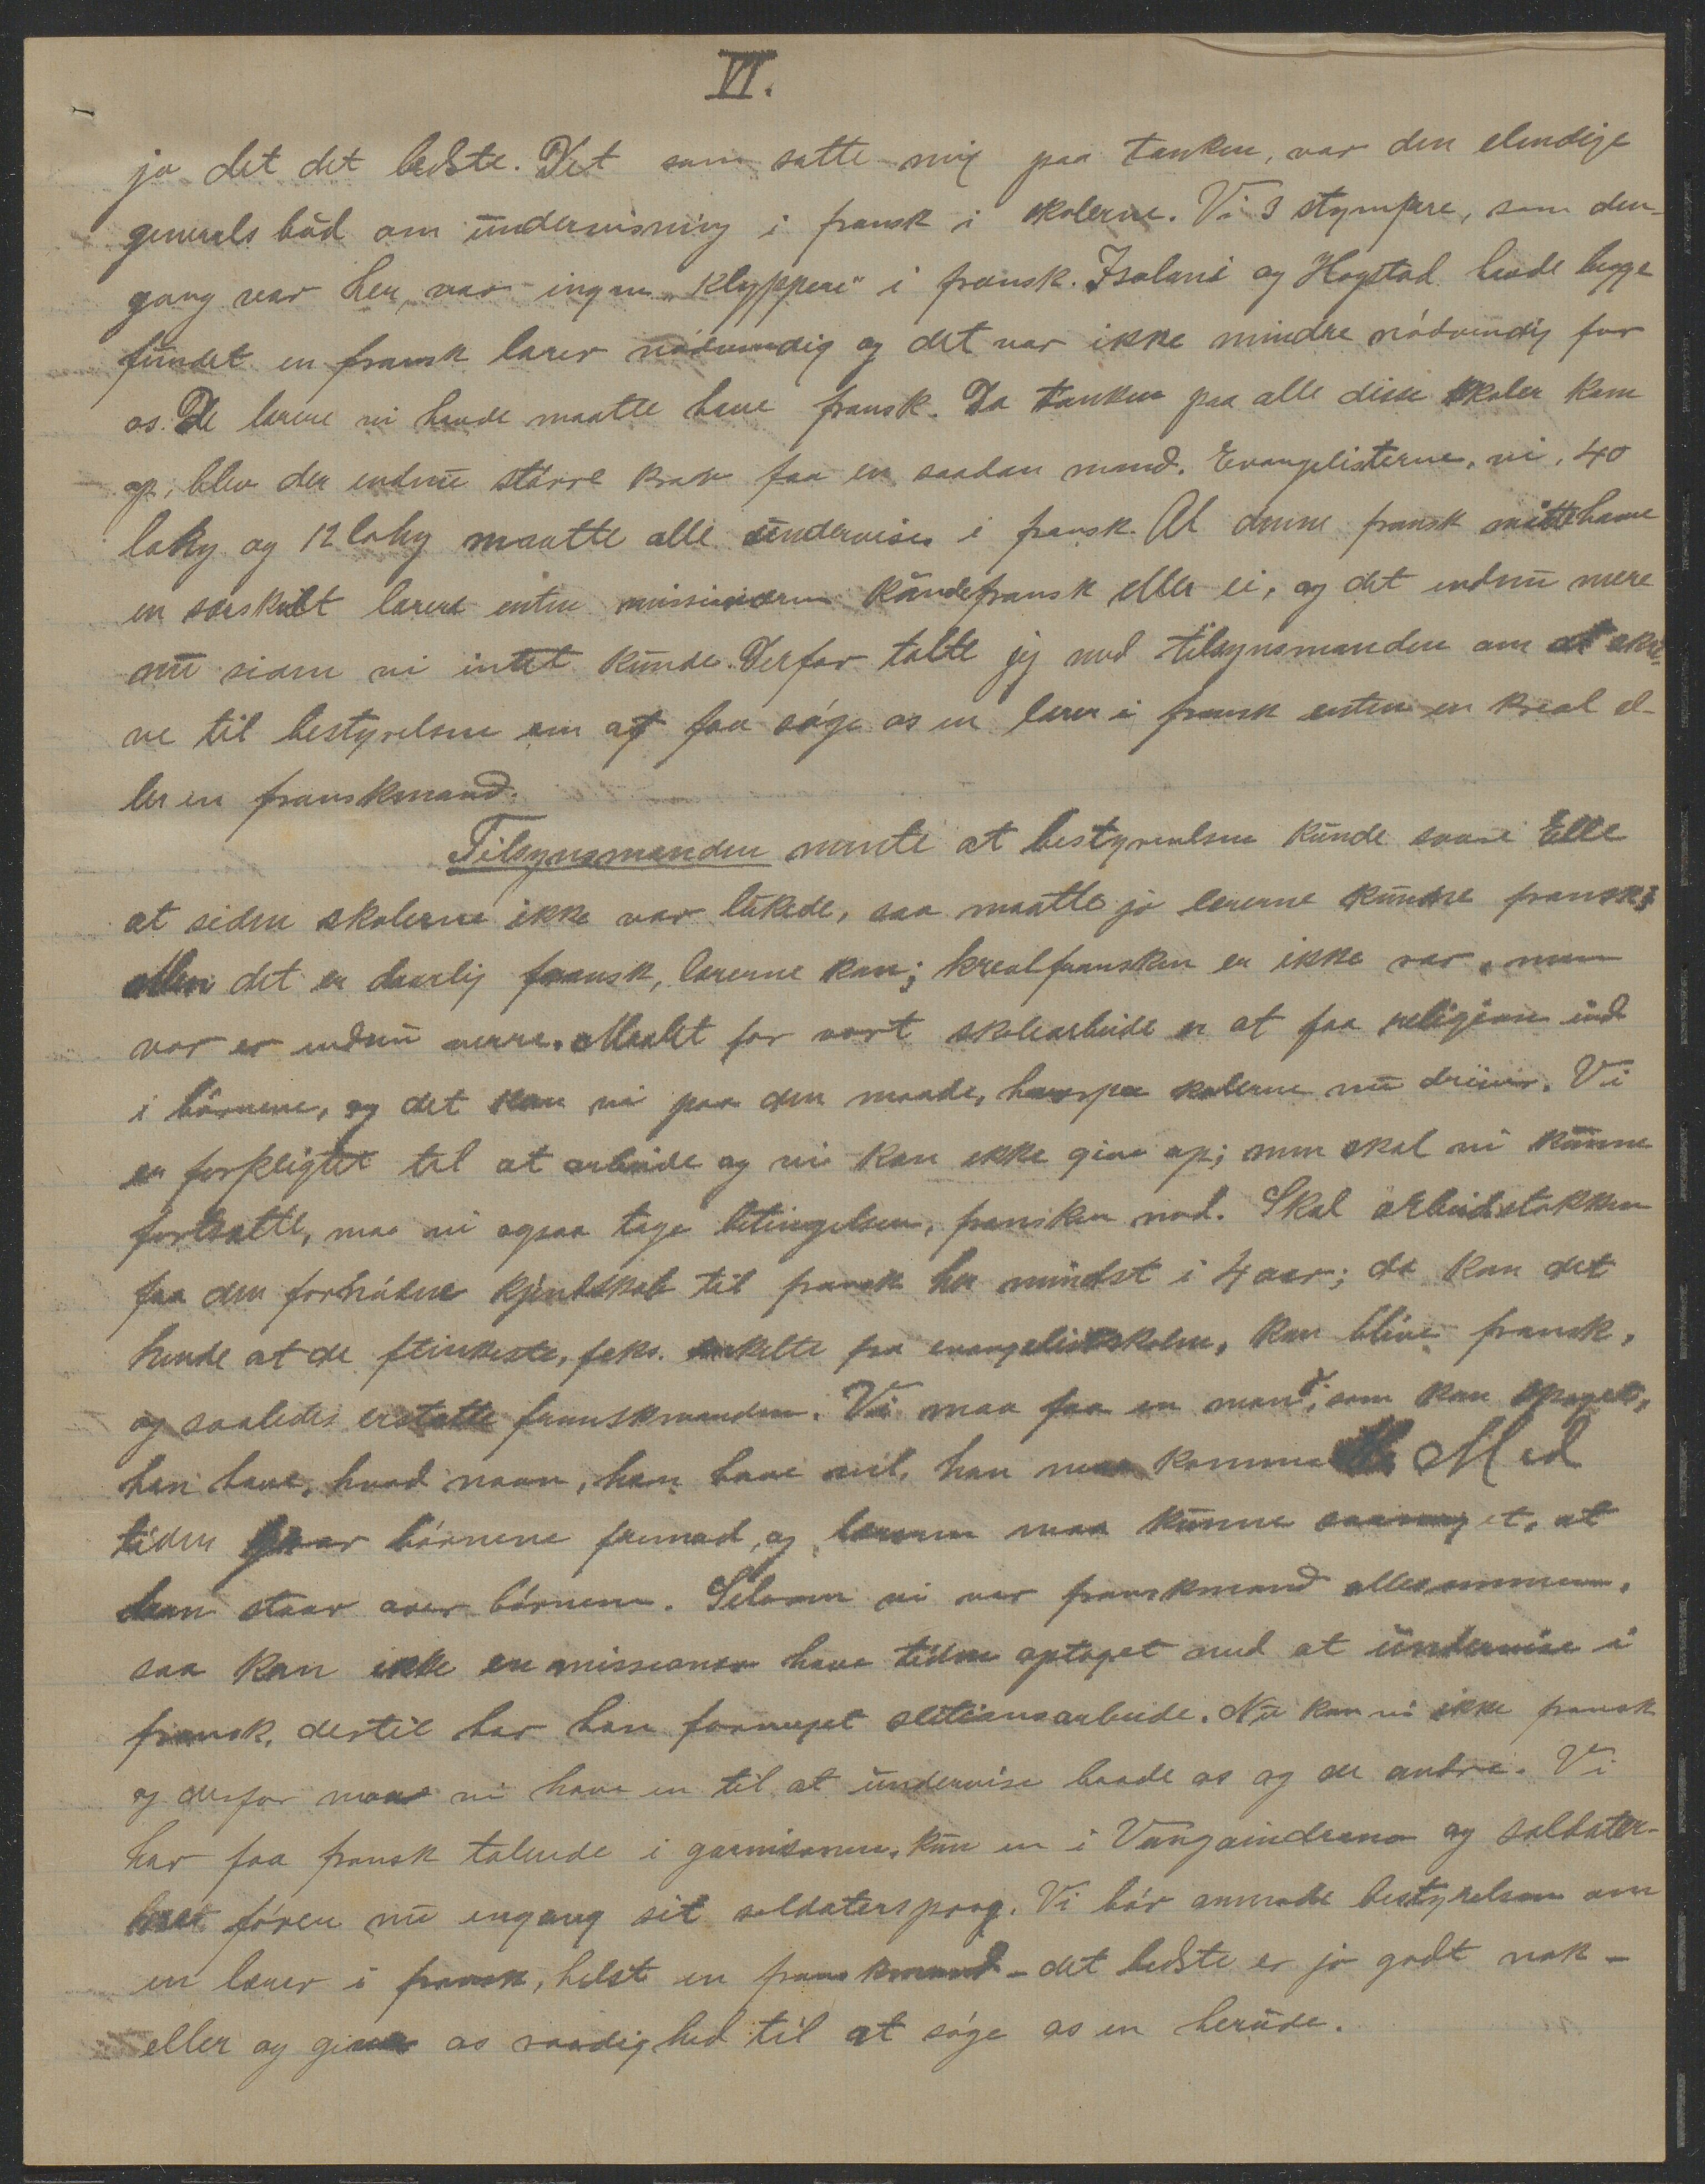 VI.
jo det det bedste. Det som satte mig paa tanken, var den elendige
generals bud om undervisning i fransk i skolerne. Vi 3 stympere, som den-
gang var her, var ingen "klyppere" i fransk. Isolani og Hogstad havde begge
fundet en fransk lærer nödvendig og det var ikke mindre nödvendig for
os. De lærere vi havde maatte have fransk. Da tanken paa alle disse skoler kom
op, blev der endnu större krav faa en saadan mand. Evangelisterne, vi, 40
lahy og 12 lahy maatte alle undervises i fransk. Al denne fransk måtte have
en særskilt lærere enten missionæren kunde fransk eller ei, og det endnu mere
nu siden vi intet kunde. Derfor talte jeg med tilsynsmanden om at skri-
ve til bestyrelsen om at faa söge os en lærer i fransk enten en kreol el-
ler en franskmand.
Tilsynsmanden mente at bestyrelsen kunde svare
at siden skolerne ikke var lukede, saa maatte jo lærerne kunne fransk;
Men det er daarlig fransk, lærerne kan; kreolfransken er ikke rar, men
vor er endnu verre. Maalet for vort skolearbeide er at faa religion ind
i börnene, og det kan vi paa den maade, hvorpaa skolerne nu drives. Vi
er forpligtet til at arbeide og vi kan ikke give op; men skal vi kunne
fortsætte, maa vi ogsaa tage betingelsen, fransken med. Skal arbeidstokken
faa den fornödne kjendskab til fransk her mindst i 4 aar; da kan det
hende at de flinkeste, f.eks. enkelte fra evangelistskolen, kan blive fransk,
og saaledes erstatte franskmanden. Vi maa faa en mand, som kan sproget,
han have, hvad navn, han have vil, han maa komme Med
tiden gaar börnene fremad, og læreren maa kunne saameget, at
han staar over börnene. Selvom vi var franskmænd allesammen,
saa kan ikke en missionær have tiden optaget med at undervise i
fransk, dertil har han formeget stationsarbeide. Nu kan vi ikke fransk
og derfor maa vi have en til at undervise baade os og de andre. Vi
har faa fransk talende i garnisonen, kun en i Vangaindrano og soldater-
förer nu engang sit soldatersprog. Vi bör anmode bestyrelsen om
en lærer i fransk, helst en franskmand – det bedste er jo godt nok –
eller og give os raadighed til at söge os en herude.